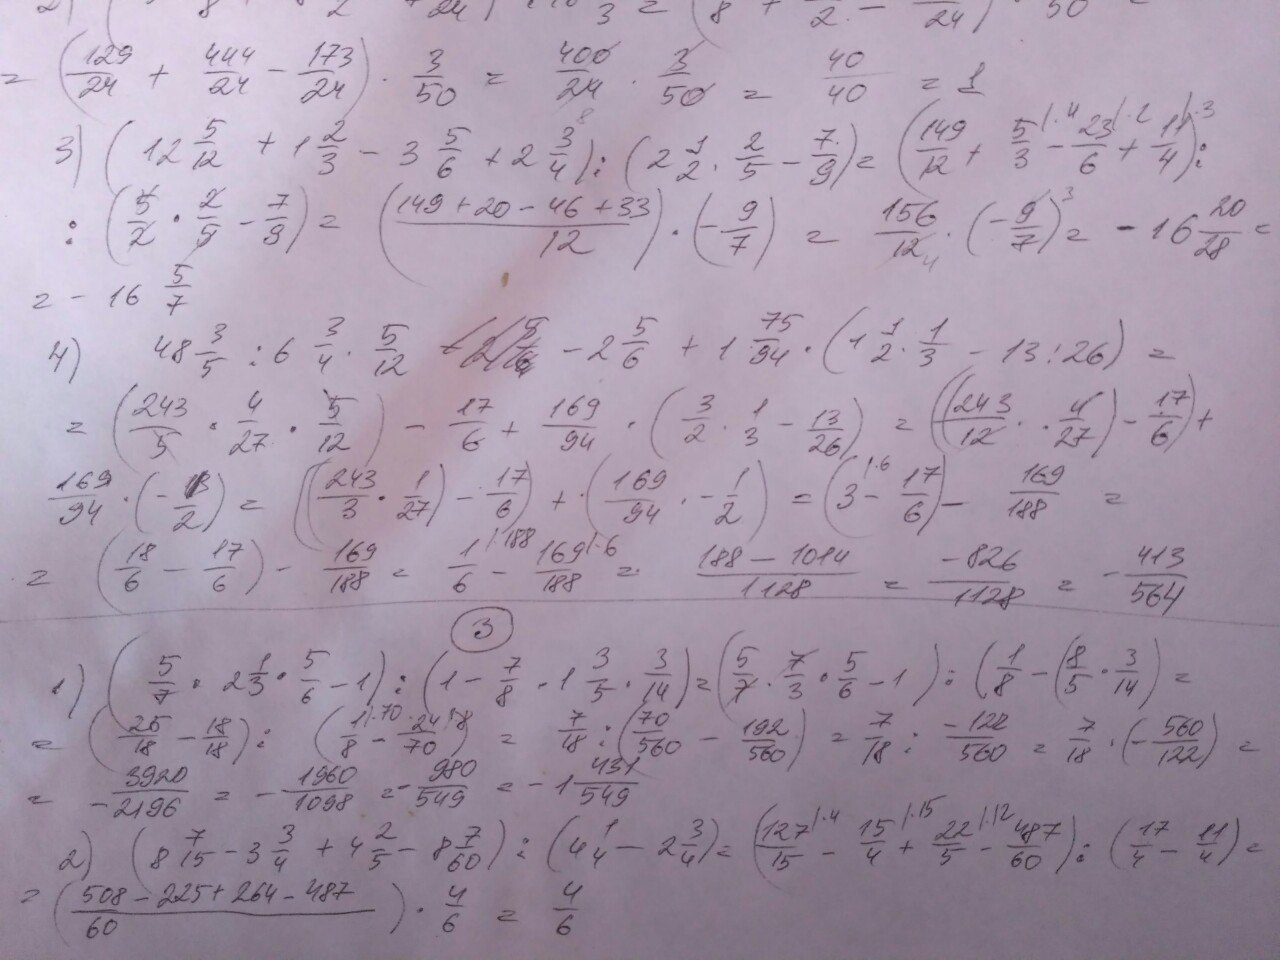 = (129/24 + 444/24 - 173/24) · 3/50 = 400/24 · 3/50 = 40/40 = 1
3) (12 5/12 + 1 2/3 - 3 5/6 + 2 3/4) : (2 1/2 · 2/5 - 7/9) = (149/12 + 5/3 |·4 - 23/6 |·2 + 11/4 |·3) :
: (5/2 · 2/9 - 7/9) = ((149 + 20 - 46 + 33)/12) · (-9/7) = 156/12 · (-9/7) = -16 20/28 =
= -16 5/7
4) 48 3/5 : 6 3/4 · 5/12 - 2 5/6 + 1 75/94 · (1 1/2 · 1/3 - 13 : 26) =
= (243/5 · 4/27 · 5/12) - 17/6 + 169/94 · (3/2 · 1/3 - 13/26) = ((243/12 · · 4/27) - 17/6) +
169/94 · (-1/2) = ((243/3 · 1/27) - 17/6) + (169/94 · -1/2) = (3 |·6 - 17/6) - 169/188 =
= (18/6 - 17/6) - 169/188 = 1/6 |·188 - 169/188 |·6 = (188 - 1014)/1128 = -826/1128 = -413/564
3
1) (5/7 · 2 1/3 · 5/6 - 1) : (1 - 7/8 - 1 3/5 · 3/14) = (5/7 · 7/3 · 5/6 - 1) : (1/8 - (8/5 · 3/14) =
= (25/18 - 18/18) : (1/8 |·70 - 24/70 |·8) = 7/18 : (70/560 - 192/560) = 7/18 : -122/560 = 7/18 · (-560/122) =
= -3920/2196 = -1960/1098 = -980/549 = -1 431/549
2) (8 7/15 - 3 3/4 + 4 2/5 - 8 7/60) : (4 1/4 - 2 3/4) = (127/15 |·4 - 15/4 |·15 + 22/5 |·12 - 487/60) : (17/4 - 11/4) =
= ((508 - 225 + 264 - 487)/60) · 4/6 = 4/6